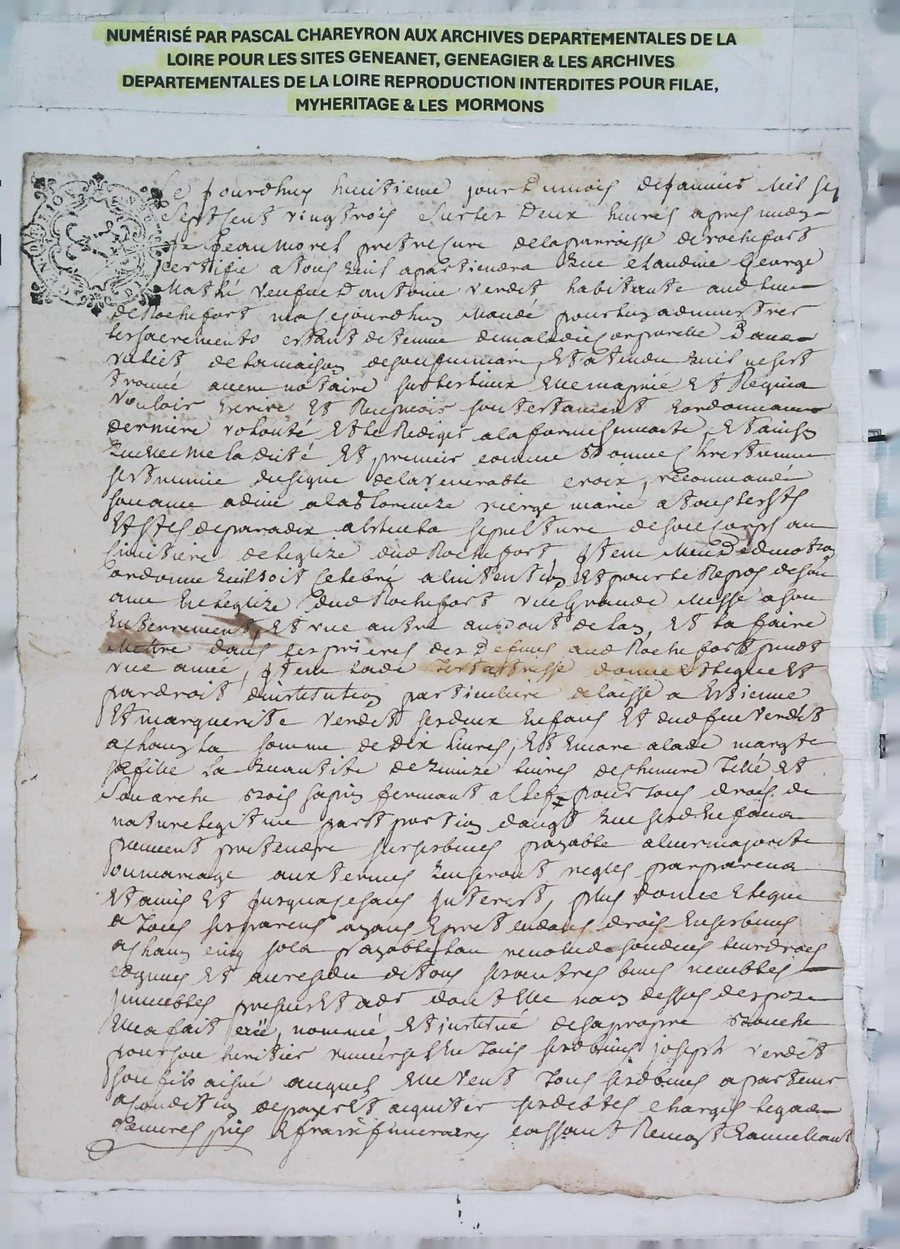 NUMÉRISÉ PAR PASCAL CHAREYRON AUX ARCHIVES DEPARTEMENTALES DE LA
LOIRE POUR LES SITES GENEANET, GENEAGIER & LES ARCHIVES
DEPARTEMENTALES DE LA LOIRE REPRODUCTION INTERDITES POUR FILAE,
MYHERITAGE & LES MORMONS
Ce jourdhuy huitieme jour du mois de janvier mil sep
Septsent vingtrois sur les deux heures apres midy
Je Jean Morel pretre cure de la parroisse de rochefort
certifie a tous quil apartiendra que claudine George
Mathé veufve dantoine verdit habitante aud lieu
de Rochefort mas cejourdhuy mandé pour luy administrer
les sacrements estant detenue de maladie corporelle dans
lit de la maison de et atendu quil ne sest
trouvé aucun notaire sur les lieux elle ma prié et requis
vouloir et son testament
derniere volonté et le rediger a la forme suivante, et ainsy
que elle me la dité et premier comme bonne chrestienne
sest munie du signe de la venerable croix, recommandé
son ame a dieu a la glorieuze vierge marie a tous les sts
et stes de paradix la sepulture de son corps au
cimitiere de leglize dud Rochefort Item
ordonne quil soit celebré a lintention et pour le repos de son
ame en leglize dud Rochefort une grande messe a son
enterrement, et une autre au bout de lan, et la faire
mettre dans les prieres des defuns aud Rochefort pendt
une année, Item lade testatrisse donne legue et
par droit dinstitution particuliere delaisse a estienne
et marguerite verdit ses deux enfans et dud feu verdit
a chacun la somme de dix livres, et encore a lade margte
sa fille la quantite de quinze livres de chenvre et
son arche bois sapin fermant a clef pour tous drois de
nature legitime part portion que sesd enfans
peuvent pretendre sur ses biens payable a leur majorite
ou mariage aux termes quy seront regles par parens
et amis et jusqua ce sans interest, plus donne et legue
a tous ses parens ayans et pretendans drois en ses biens
a chacun cinq sols payables
et au residu de tous ses autres biens meubles
immeubles presens et a dont elle na cy dessus dispozé
elle a fait créé, nommé, et institué de sa propre bouche
pour son heritier universel en tous sesd biens joseph verdit
son fils aisné auquel elle veut tous sesd biens apartenir
a condition de payer et aquiter ses debtes charges legas
et frais funeraires cassant